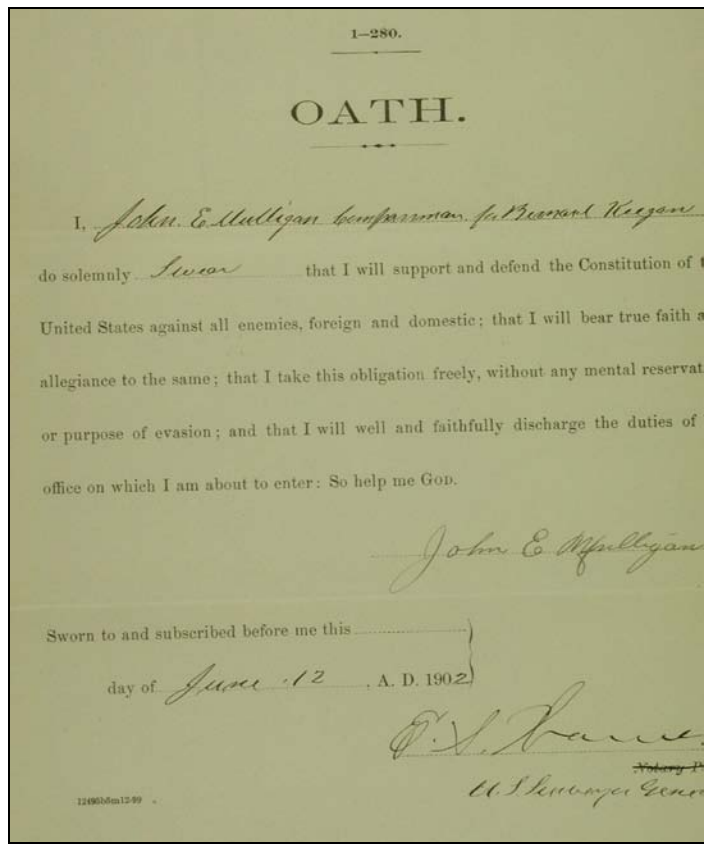 1—280.
OATH.
I, John. E. Mulligan Compassman for Bernard Keegan
do solemnly Swear that I will support and defend the Constitution of t
United States against all enemies, foreign and domestic; that I will bear true faith a
allegiance to the same; that I take this obligation freely, without any mental reservat
or purpose of evasion; and that I will well and faithfully discharge the duties of
office on which I am about to enter: So help me GOD.
John E Mulligan
Sworn to and subscribed before me this
day of June 12, A. D. 1902
E. S.
Notary P
U. S. Surveyor Gener
12495b5m12-99